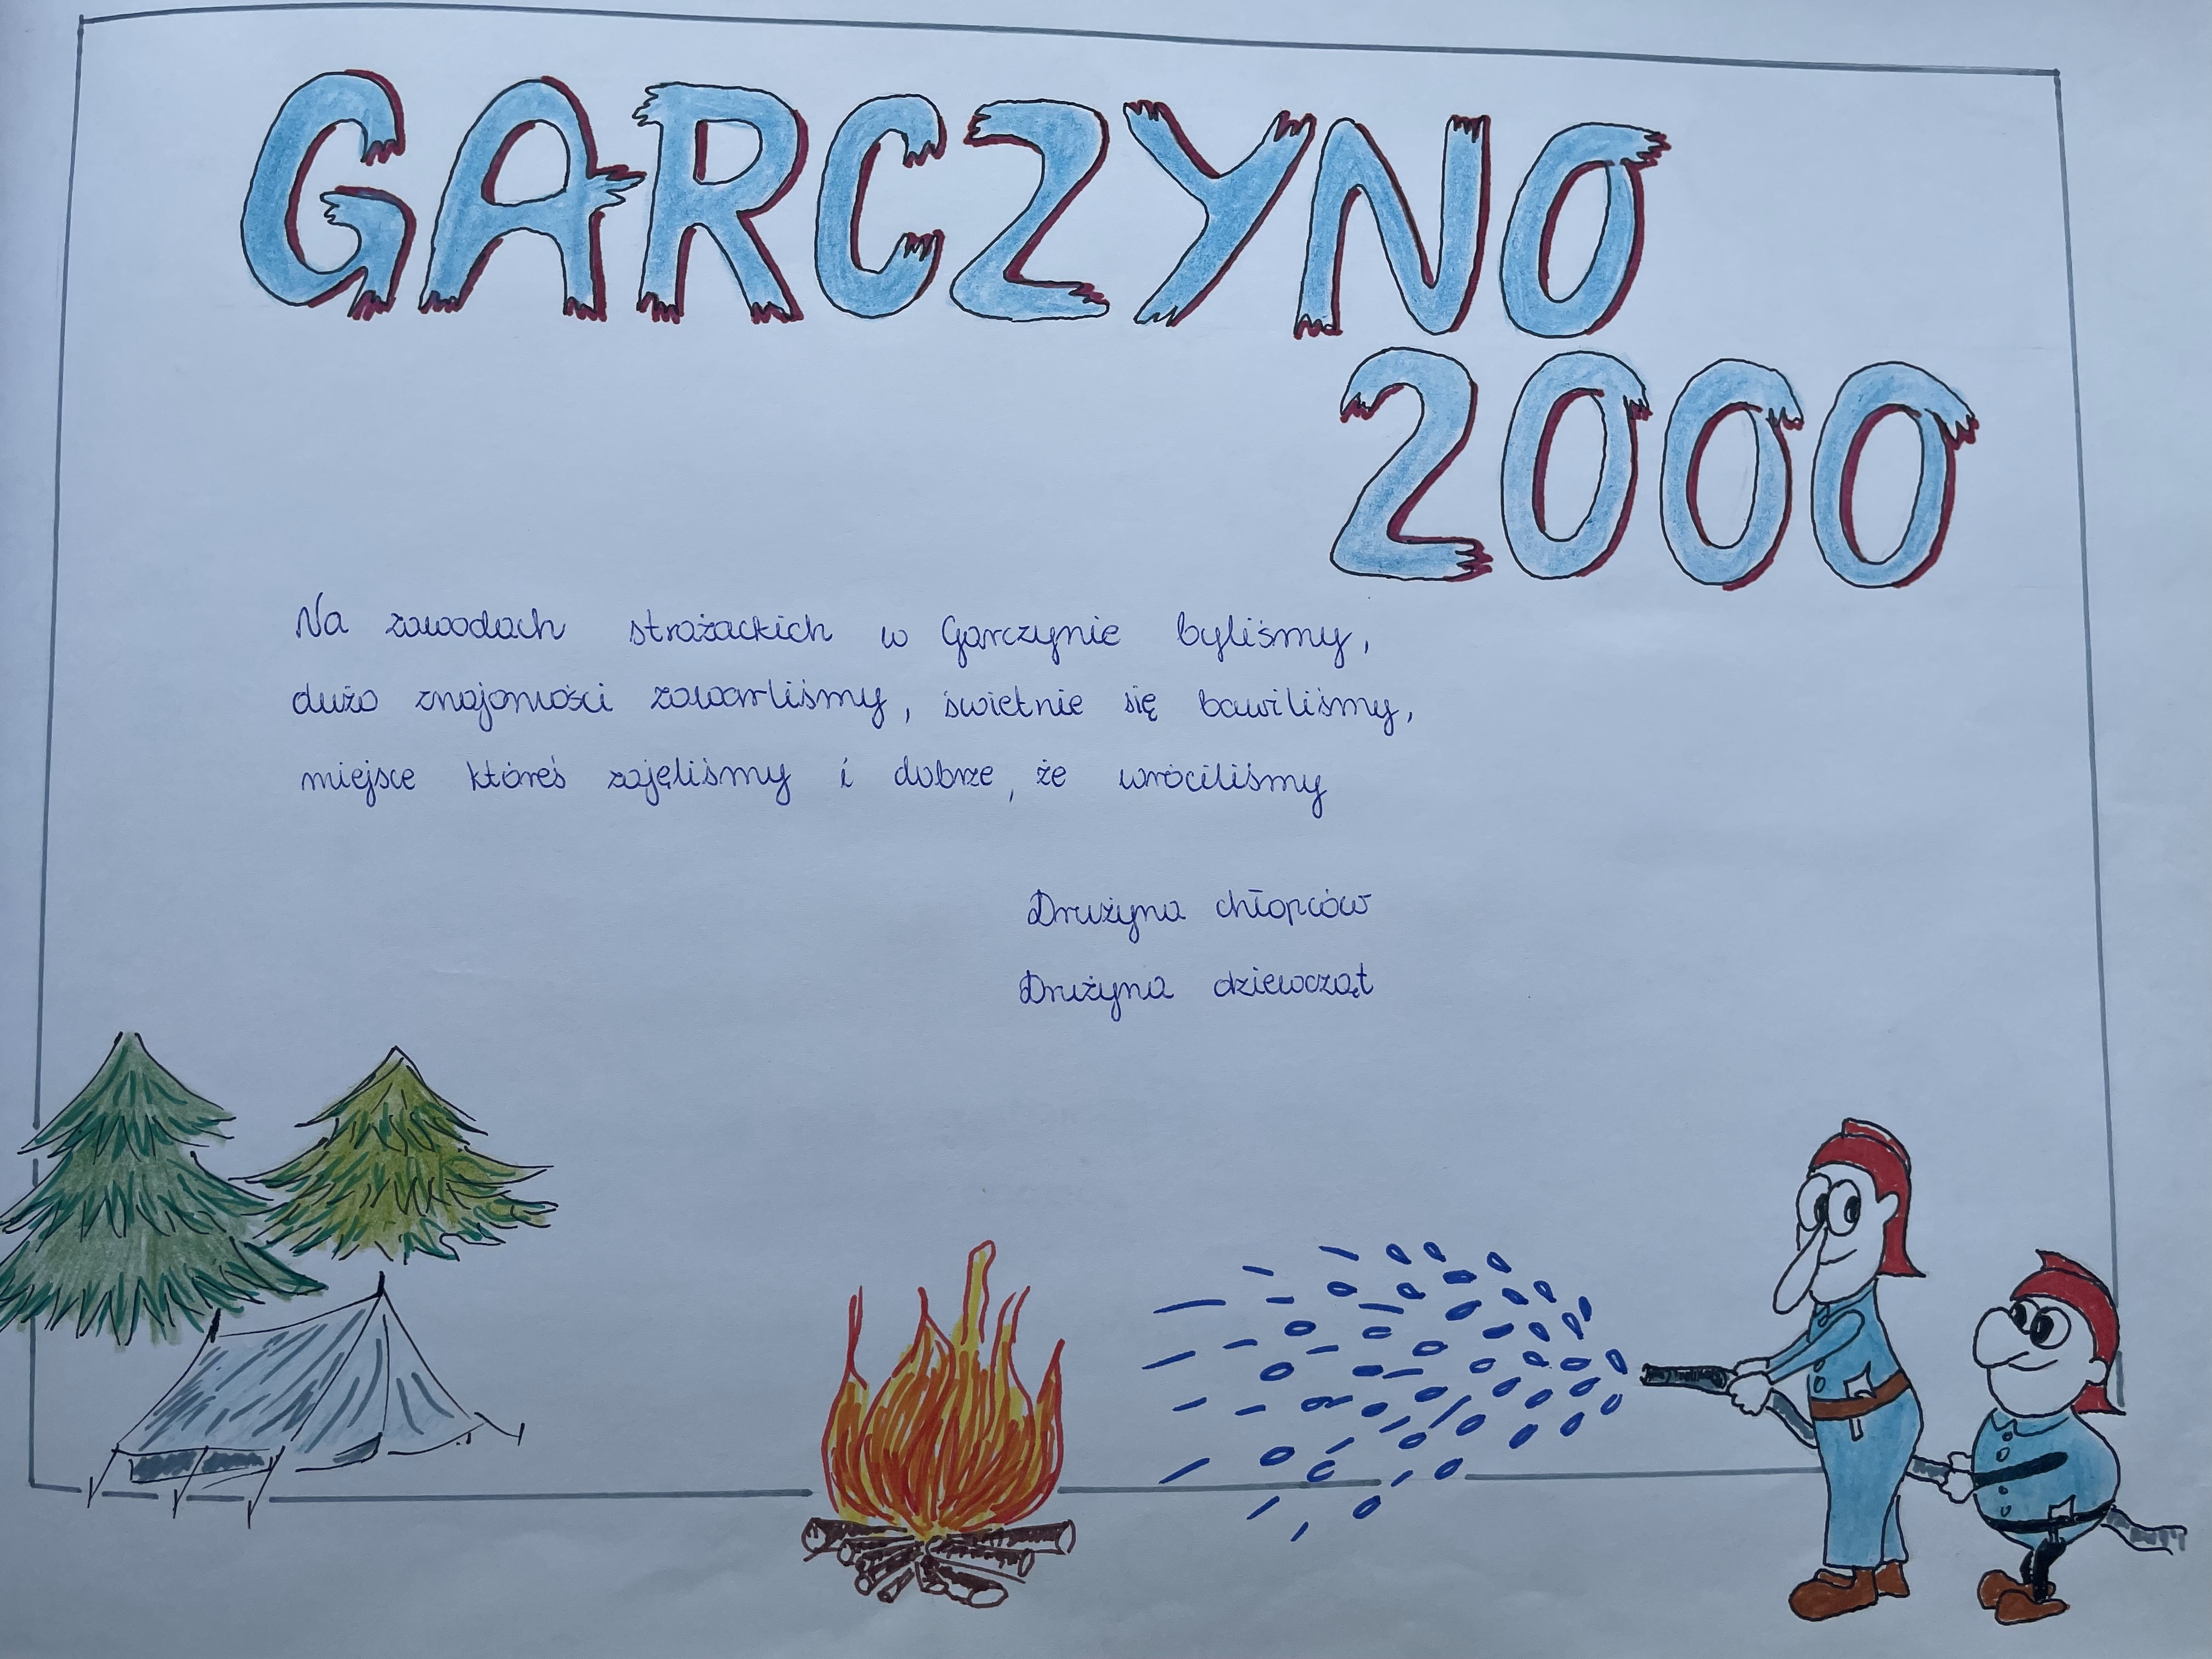 GARCZYNO
2000
Na zawodach strażackich w Garczynie byliśmy,
dużo znajomości zawarliśmy, świetnie się bawiliśmy,
miejsce któreś zajęliśmy i dobrze, że wróciliśmy
Drużyna chłopców
Drużyna dziewcząt